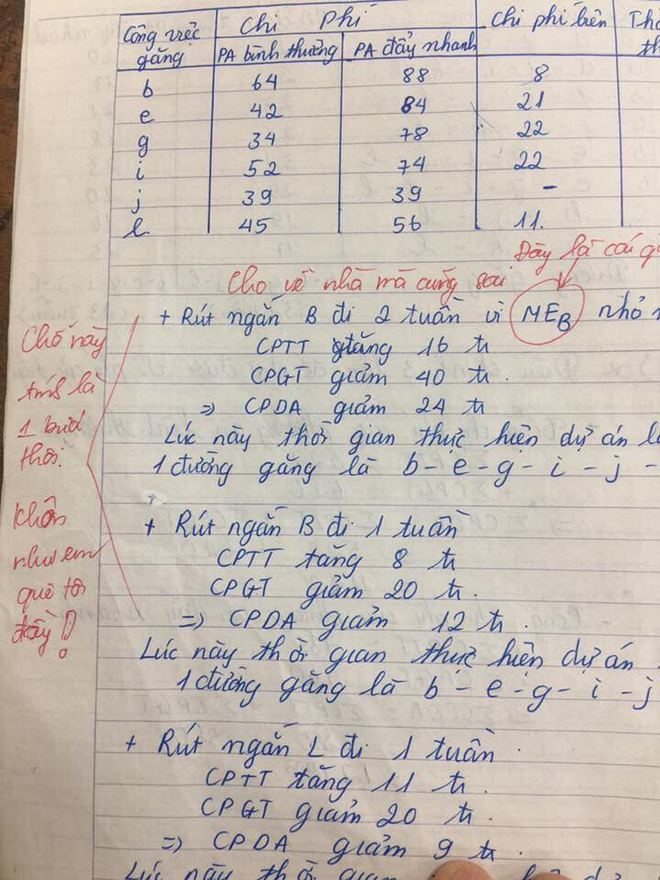 Công việc găng | Chi Phí | Chi phí biên
PA bình thường | PA đẩy nhanh
b | 64 | 88 | 8
e | 42 | 84 | 21
g | 34 | 78 | 22
i | 52 | 74 | 22
j | 39 | 39 | -
l | 45 | 56 | 11.
Đây là cái
Cho về nhà mà cũng sai
+ Rút ngắn B đi 2 tuần vì MEB nhỏ
CPTT tăng 16 tr
CPGT giảm 40 tr.
=> CPDA giảm 24 tr
Lúc này thời gian thực hiện dự án
1 đường găng là b - e - g - i - j -
Chỗ này
tính là
1 bước
thôi.
Khôn
như em
quê tôi
đầy!
+ Rút ngắn B đi 1 tuần
CPTT tăng 8 tr
CPGT giảm 20 tr.
=> CPDA giảm 12 tr.
Lúc này thời gian thực hiện dự án
1 đường găng là b - e - g - i - j
+ Rút ngắn L đi 1 tuần.
CPTT tăng 11 tr.
CPGT giảm 20 tr.
=> CPDA giảm 9 tr.
Lúc này thời gian